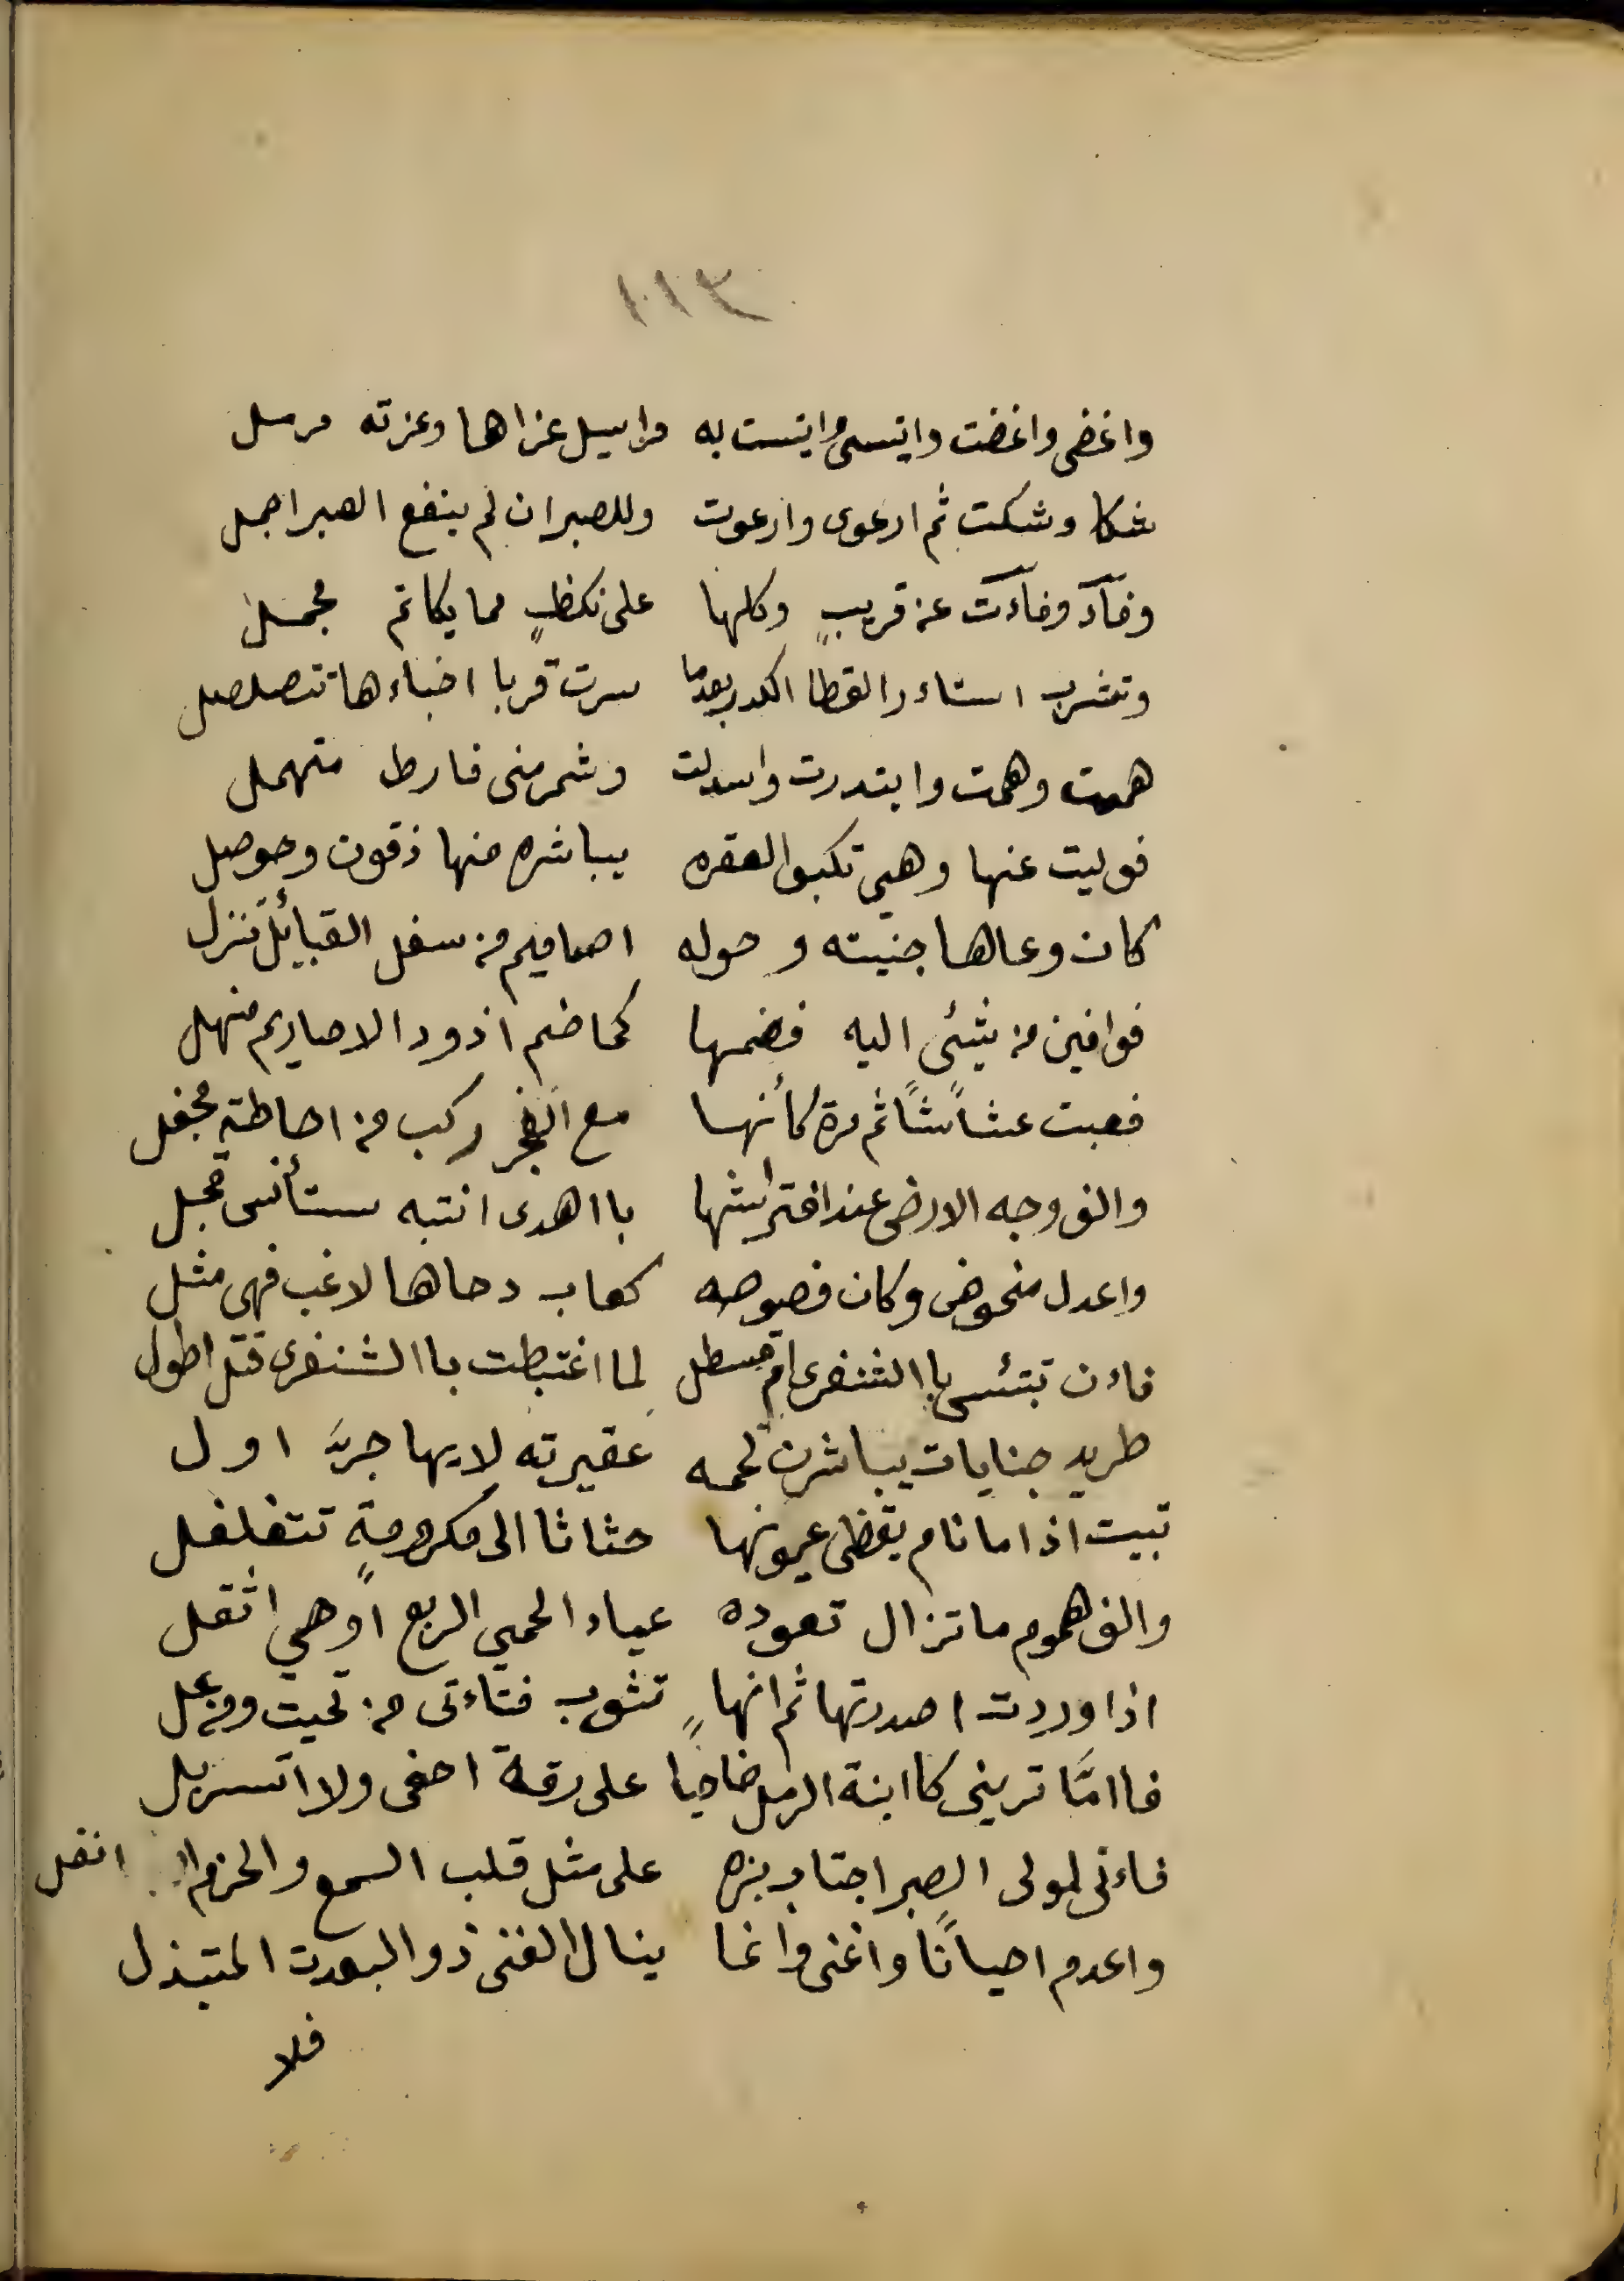 ١١٣
واغضى واغضت واتسى واتست به مراميل عزاها وعزته مرمل
شكا وشكت ثم ارعوى وارعوت وللصبر ان لم ينفع الصبر اجمل
وفآد وفاءت عن قريبٍ وكلها على نكظٍ مما يكاتم مجمل
وتشرب استاءر القطا الكدر بعدما سرت قربا احناءها تتصلصل
هممت وهمت وابتدرت واسدلت وشمر منى فارط متمهل
فوليت عنها وهي تكبوا لعقره يباشره منها ذقون وحوصل
كان وعاها جنيته وحوله اصاميم من سفل القبائل نزل
فوافين من شئى اليه فضمها كما ضم اذود الاصاريم منهل
فعبت عشاشاً ثم مرة كأنها مع الفجر ركب من احاظة مجفل
والف وجه الارض عند افتراشها با اهدى انتبه سنأنس قحل
واعدل منحوض وكان فصوصه كعاب دحاها لاعب فهى مثل
فاءن تبتئس با الشنفرى ام قسطل لما اغتبطت با الشنفرى قتل اطول
طريد جنايات يباشرن لحمه عقيرته لايها جرَّ اول
تبيت اذا ما نام يقظى عيونها حثاثا الى مكروهةٍ تتغلغل
والف هموم ما تزال تعوده عياد الحمي الربع اوهي اثقل
اذا وردت اصدرتها ثم انها تثوب فتاءتى من تحيت ومن عل
فاامَّا تريني كاابنة الرمل ضاحيا على رقة احفى ولا اتسربل
فاءنى لمولى الصبر اجتاب بزه على مثل قلب السمع والحزم انعل
واعدم احيانًا واغنى وانما ينال الغنى ذو البعدت المتبذل
فلا